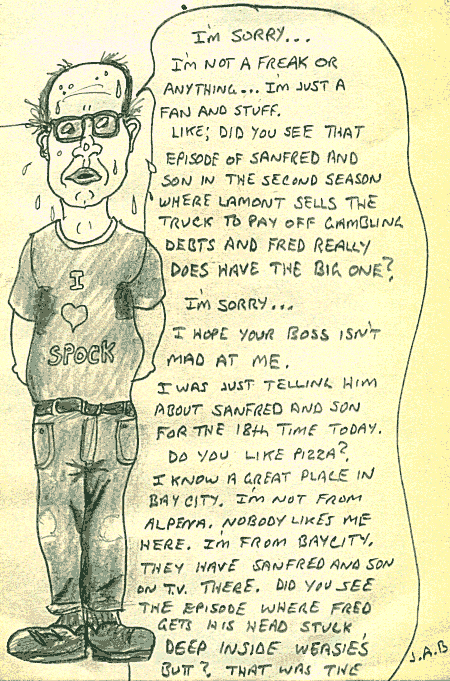 I'M SORRY...
I'M NOT A FREAK OR
ANYTHING... I'M JUST A
FAN AND STUFF.
LIKE; DID YOU SEE THAT
EPISODE OF SANFRED AND
SON IN THE SECOND SEASON
WHERE LAMONT SELLS THE
TRUCK TO PAY OFF GAMBLING
DEBTS AND FRED REALLY
DOES HAVE THE BIG ONE?
I'M SORRY...
I HOPE YOUR BOSS ISN'T
MAD AT ME.
I WAS JUST TELLING HIM
ABOUT SANFRED AND SON
FOR THE 18th TIME TODAY.
DO YOU LIKE PIZZA?
I KNOW A GREAT PLACE IN
BAY CITY. I'M NOT FROM
ALPENA. NOBODY LIKES ME
HERE. I'M FROM BAYCITY.
THEY HAVE SANFRED AND SON
ON T.V. THERE. DID YOU SEE
THE EPISODE WHERE FRED
GETS HIS HEAD STUCK
DEEP INSIDE WEASIE'S
BUTT? THAT WAS THE
I
♡
SPOCK
J.A.B